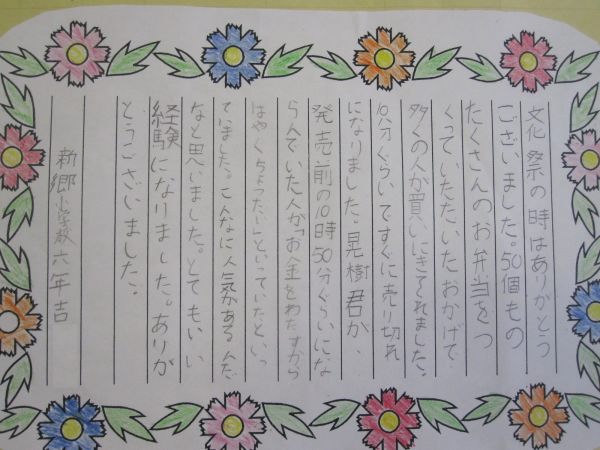 文化祭の時はありがとう
ございました。50個もの
たくさんのお弁当をつ
くっていただいたおかげで
多くの人が買いにきてくれました。
10分ぐらいですぐに売り切れ
になりました。晃樹君が、
発売前の10時50分ぐらいにな
らんでいた人が「お金をわたすから
はやくちょうだい」といっていたといっ
ていました。こんなに人気があるんだ
なと思いました。とてもいい
経験になりました。ありが
とうございました。
新郷小学校六年吉